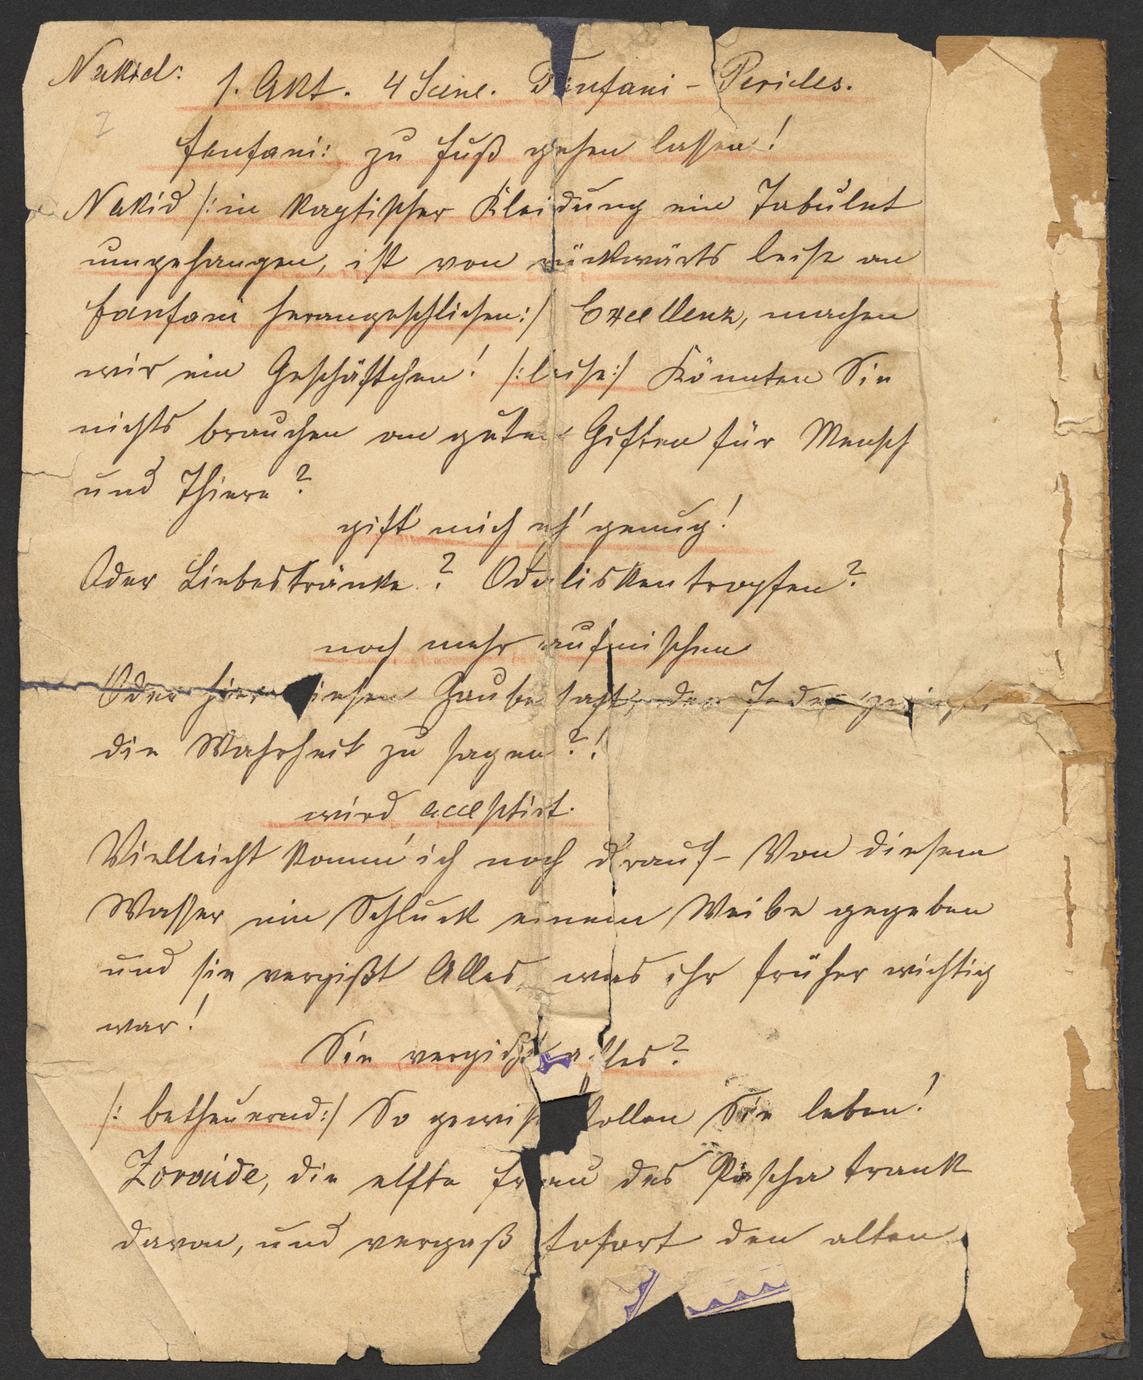 Nakid:
1. Akt. 4 Scene. Fanfani – Pericles.
Fanfani: zu Fuß gehen lassen!
Nakid /: in koptischer Kleidung ein Tabulet
umgehangen, ist von rückwärts leise an
Fanfani herangeschlichen :/ Excellenz, machen
wir ein Geschäftchen! /: leise :/ Könnten Sie
nichts brauchen an guten Giften für Mensch
und Thiere?
gift' mich eh' genug!
Oder Liebestränke? Odaliskentropfen?
noch mehr aufmischen
Oder hier diesen Zaubersaft, der Jeden zwingt
die Wahrheit zu sagen?!
wird acceptirt.
Vielleicht komm' ich noch d'rauf – Von diesem
Wasser ein Schluck einem Weibe gegeben
und sie vergißt Alles, was ihr früher wichtig
war!
Sie vergißt alles?
/: betheuernd :/ So gewiß sollen Sie leben!
Zoraide, die elfte Frau des Pascha trank
davon, und vergaß sofort den alten